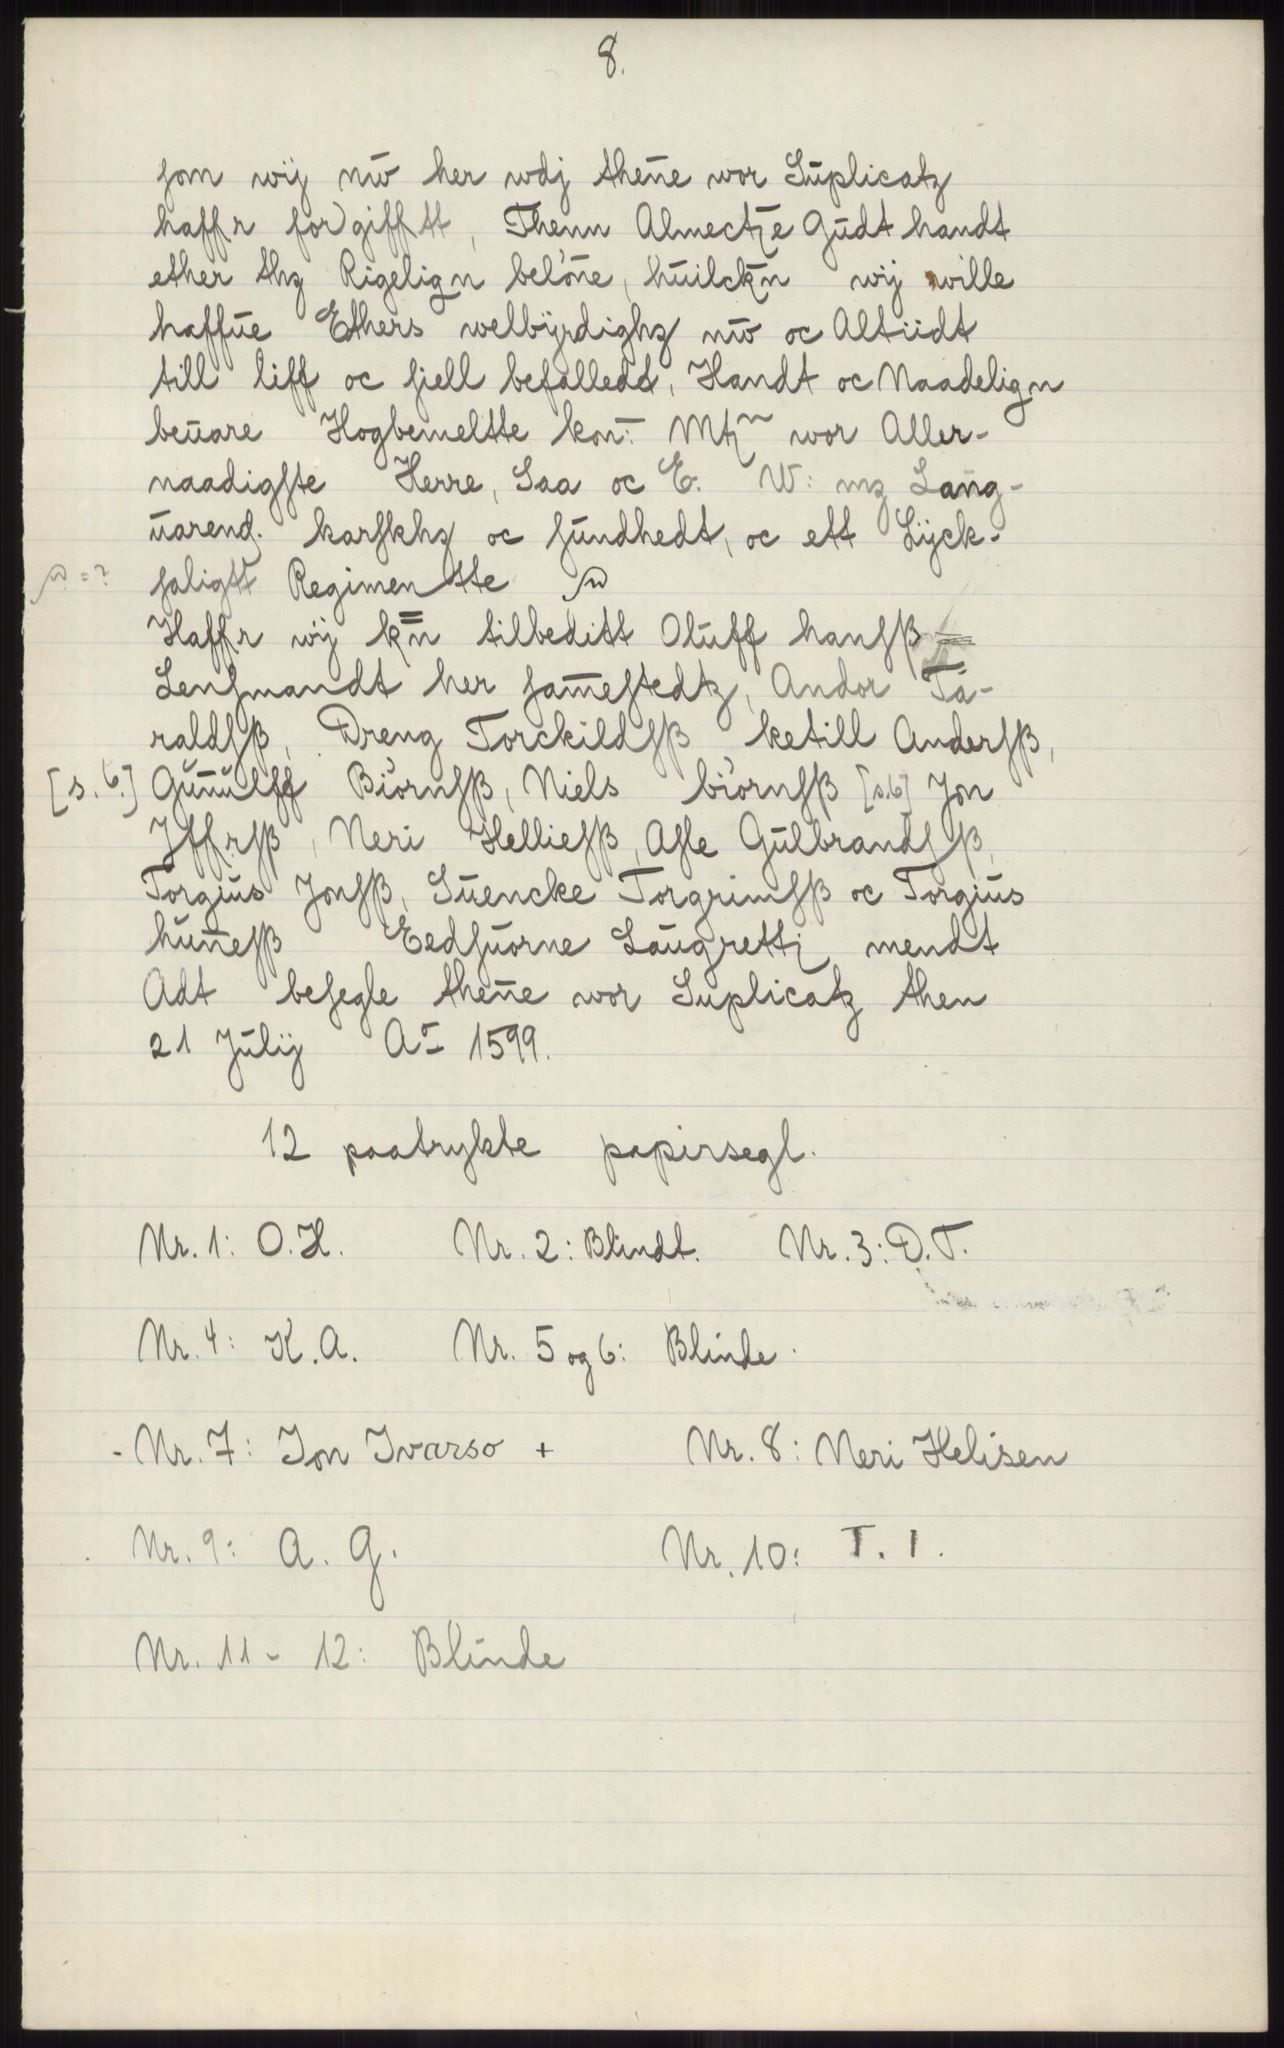 8.
som wij nw her wdj thene wor Suplicatz
haffr forgifftt, Thenn Almectze Gudt handt
ether thz Rigelign beløne, huilckn wij wille
haffue Ethers welbÿrdighz nw oc Altiidt
till liff oc siell befalledt, Handt oc Naadelign
beuare Hogbemeltte kon: Mtz wor Aller-
naadigste Herre, Saa oc E. W: mz Lang-
uarend. karskhz oc sundhedt, oc ett Lÿck-
saligtt Regimentte
Haffr wij kn tilbeditt Oluff hansß
Lensmandt her samestedtz, Andor Ta-
raldsß, Dreng Torckildsß ketill Andersß,
[s. 6.] Gunulff Biörnsß, Niels biörnsß [s.6] Jon
Jffrsß, Neri Helliesß, Asle Gulbrandsß,
Torgius Jonsß, Suencke Torgrimsß oc Torgius
hunesß Eedsuorne Laugrettz mendt
Adt besegle thene wor Suplicatz then
21 Julij Ao 1599.
12 paatrykte papirsegl.
Nr. 1: O.H. Nr. 2: Blindt. Nr. 3: D.T.
Nr. 4: K.A. Nr. 5 og 6: Blinde.
- Nr. 7: Jon Ivarso + Nr. 8: Neri Helisen
Nr. 9: A. G. Nr. 10: T. I.
Nr. 11 - 12: Blinde